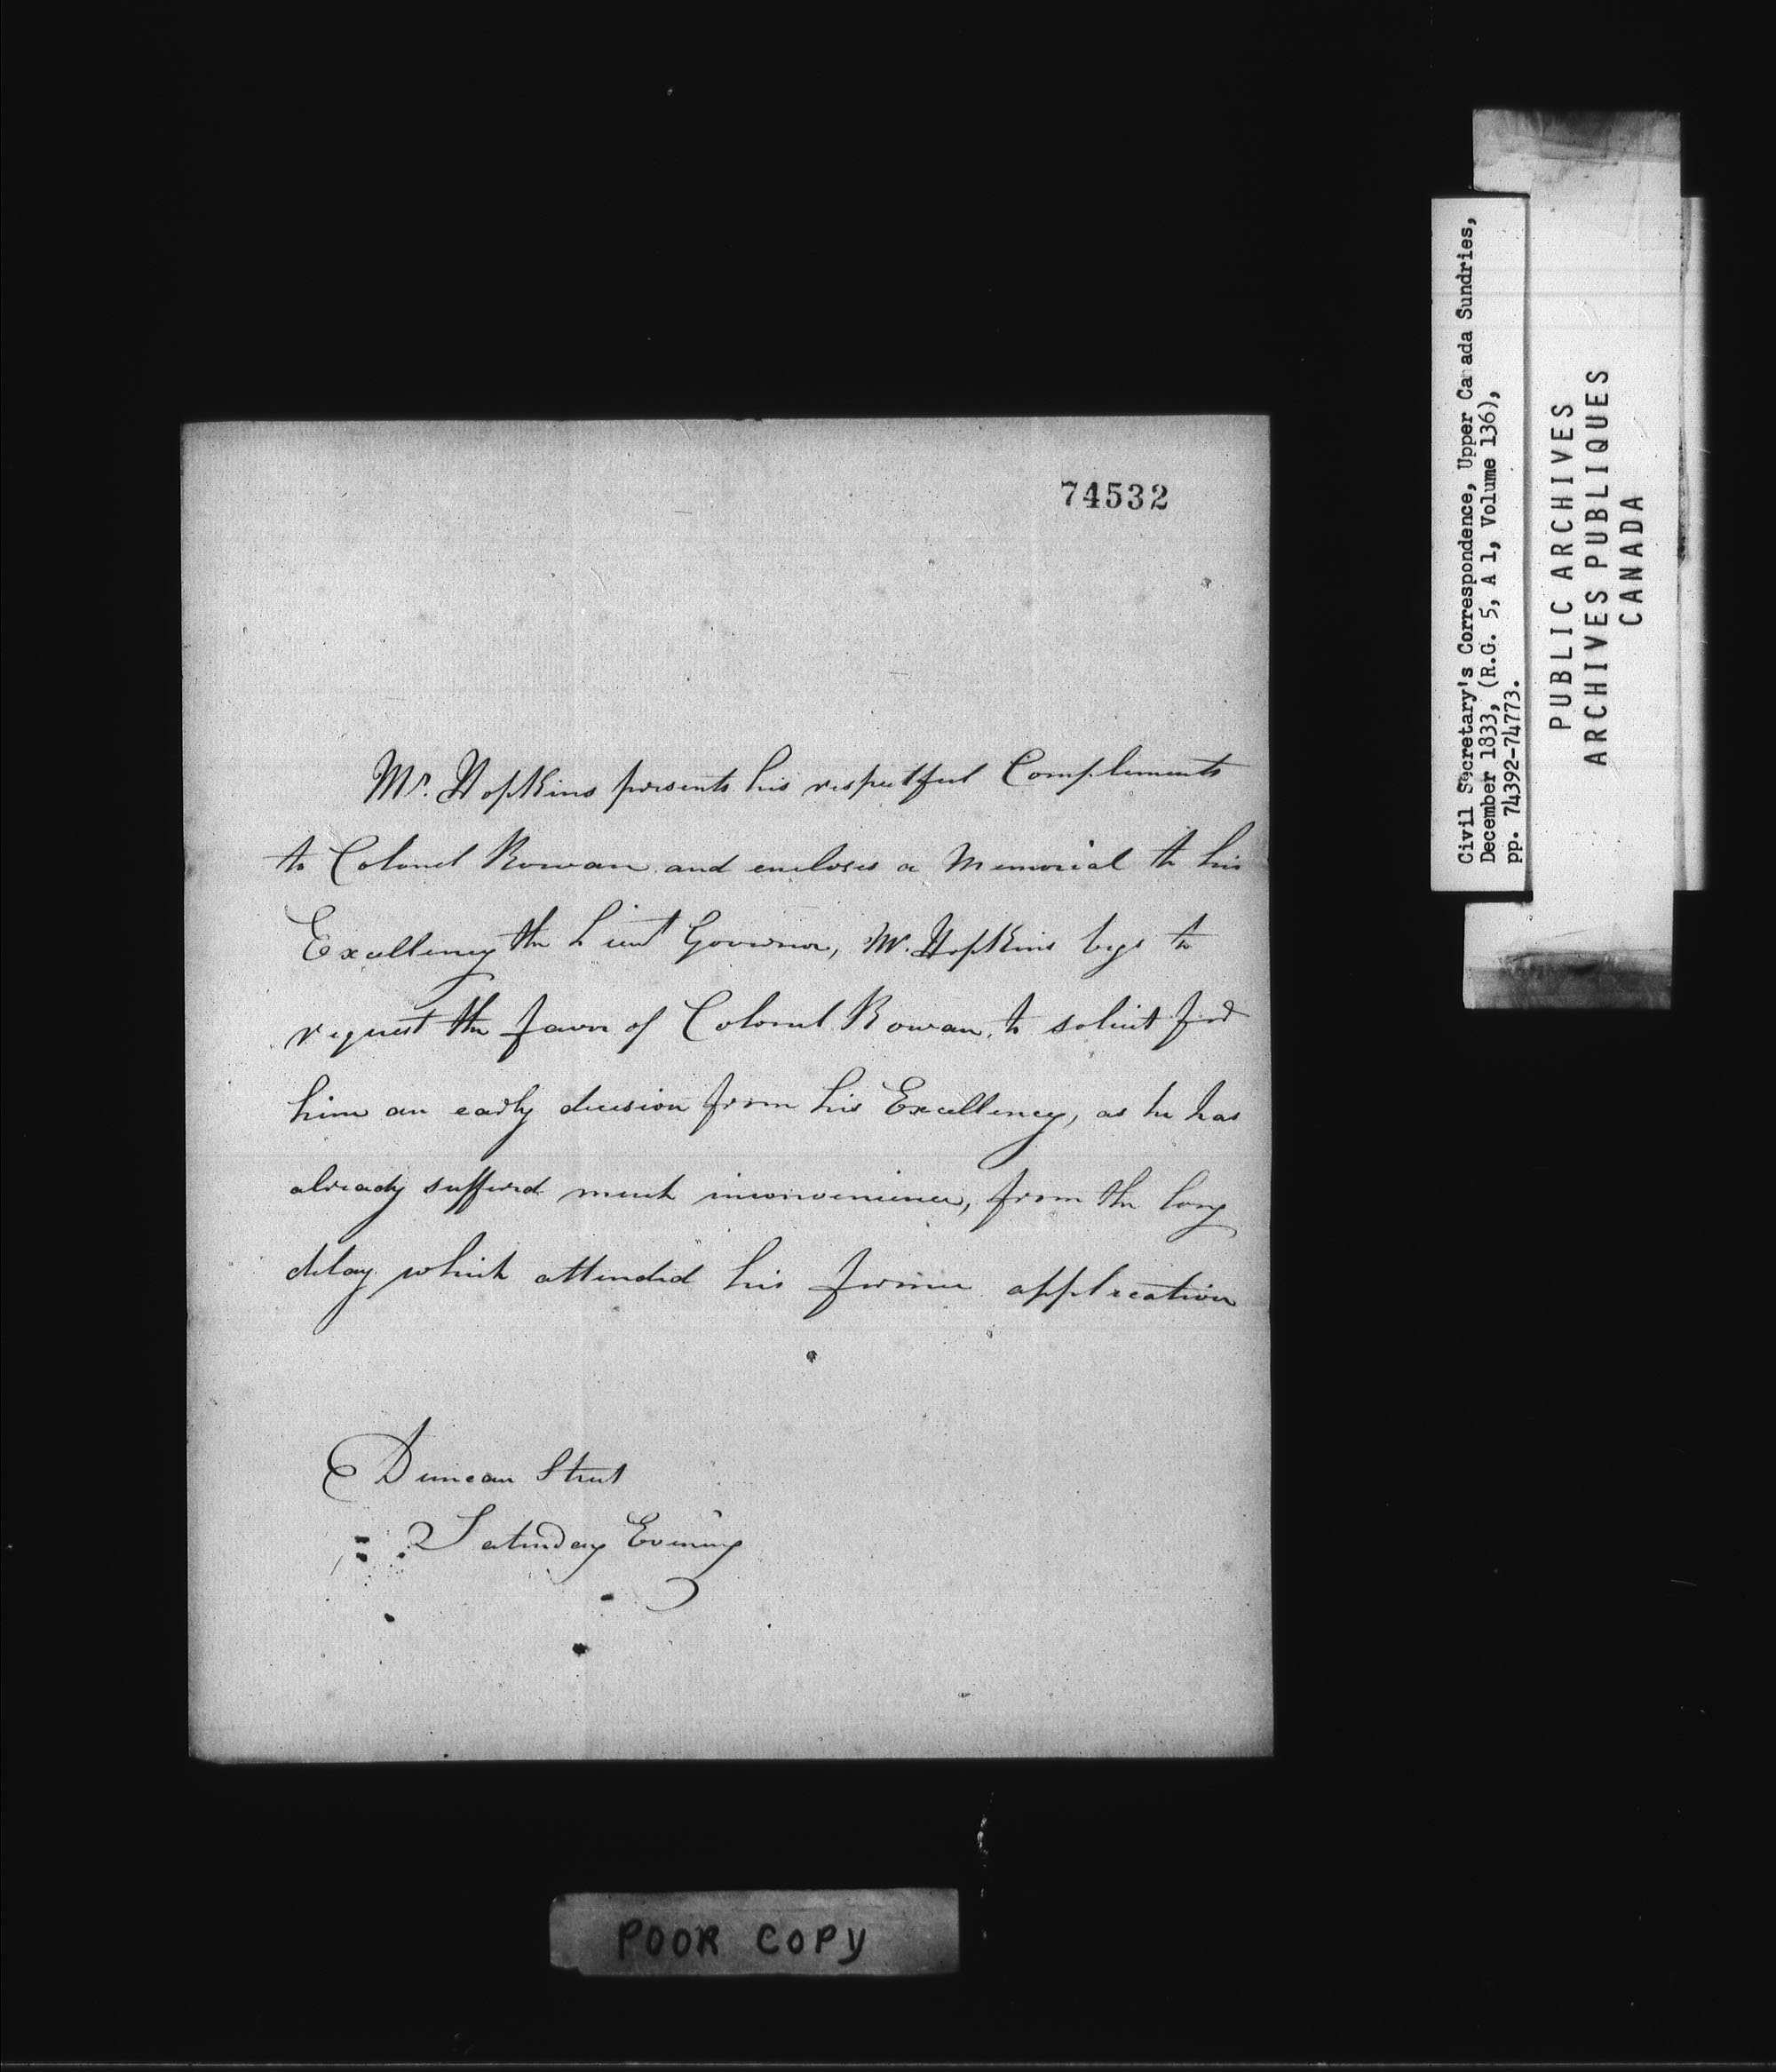 74532
Mr. Hopkins presents his respectful Compliments
to Colonel Rowan and encloses a Memorial to his
Excellency the Lieut Governor, Mr. Hopkins begs to
request the favor of Colonel Rowan, to solicit for
him an early decision from his Excellency, as he has
already sufferd much inconvenience, from the long
delay which attended his former application
Duncan Street
Saturday Evening
POOR COPY
Civil Secretary's Correspondence, Upper Canada Sundries,
December 1833, (R.G. 5, A 1, Volume 136),
pp. 74392-74773.
PUBLIC ARCHIVES
ARCHIVES PUBLIQUES
CANADA